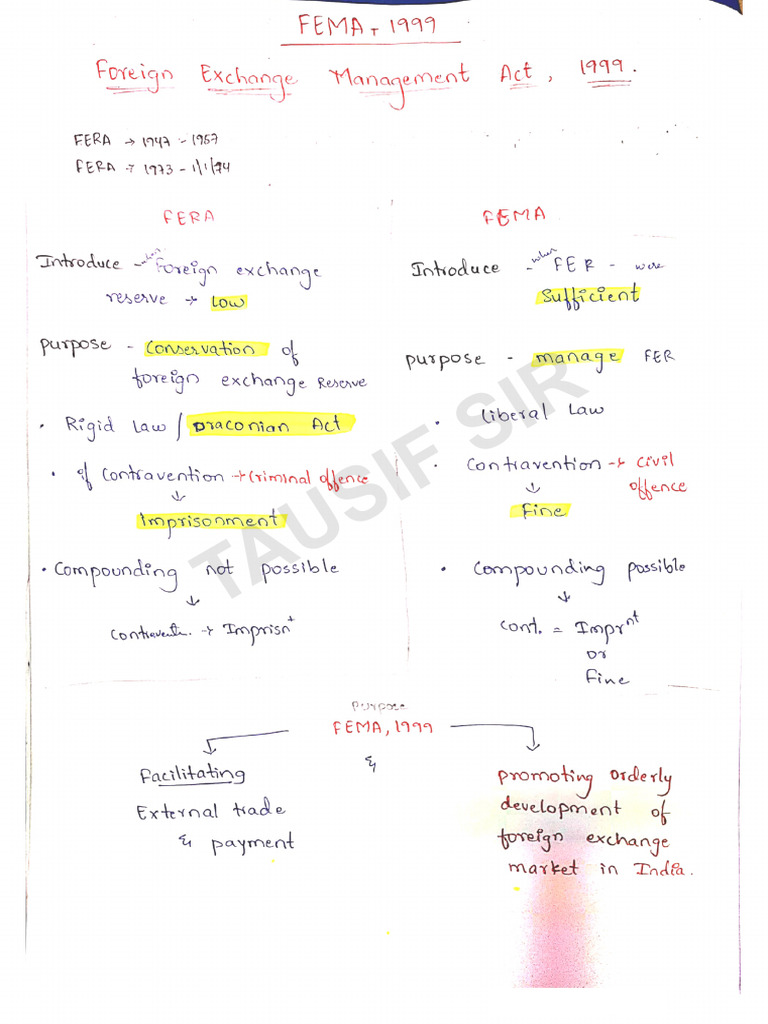 FEMA, 1999
Foreign Exchange Management Act, 1999.
FERA → 1947 - 1957
FERA → 1973 - 1/1/74
FERA
Introduce - when Foreign exchange
reserve → Low
purpose - conservation of
foreign exchange Reserve
• Rigid Law / Draconian Act
• if contravention → criminal offence
↓
Imprisonment
• Compounding not possible
↓
Contraventn. → Imprisnt
FEMA
Introduce - when FER - were
Sufficient
purpose - manage FER
• Liberal Law
• Contravention → civil
offence
↓
Fine
• Compounding possible
↓
Cont. = Imprnt
or
Fine
TAUSIF SIR
Purpose
FEMA, 1999
Facilitating
External trade
& payment
&
promoting orderly
development of
foreign exchange
market in India.